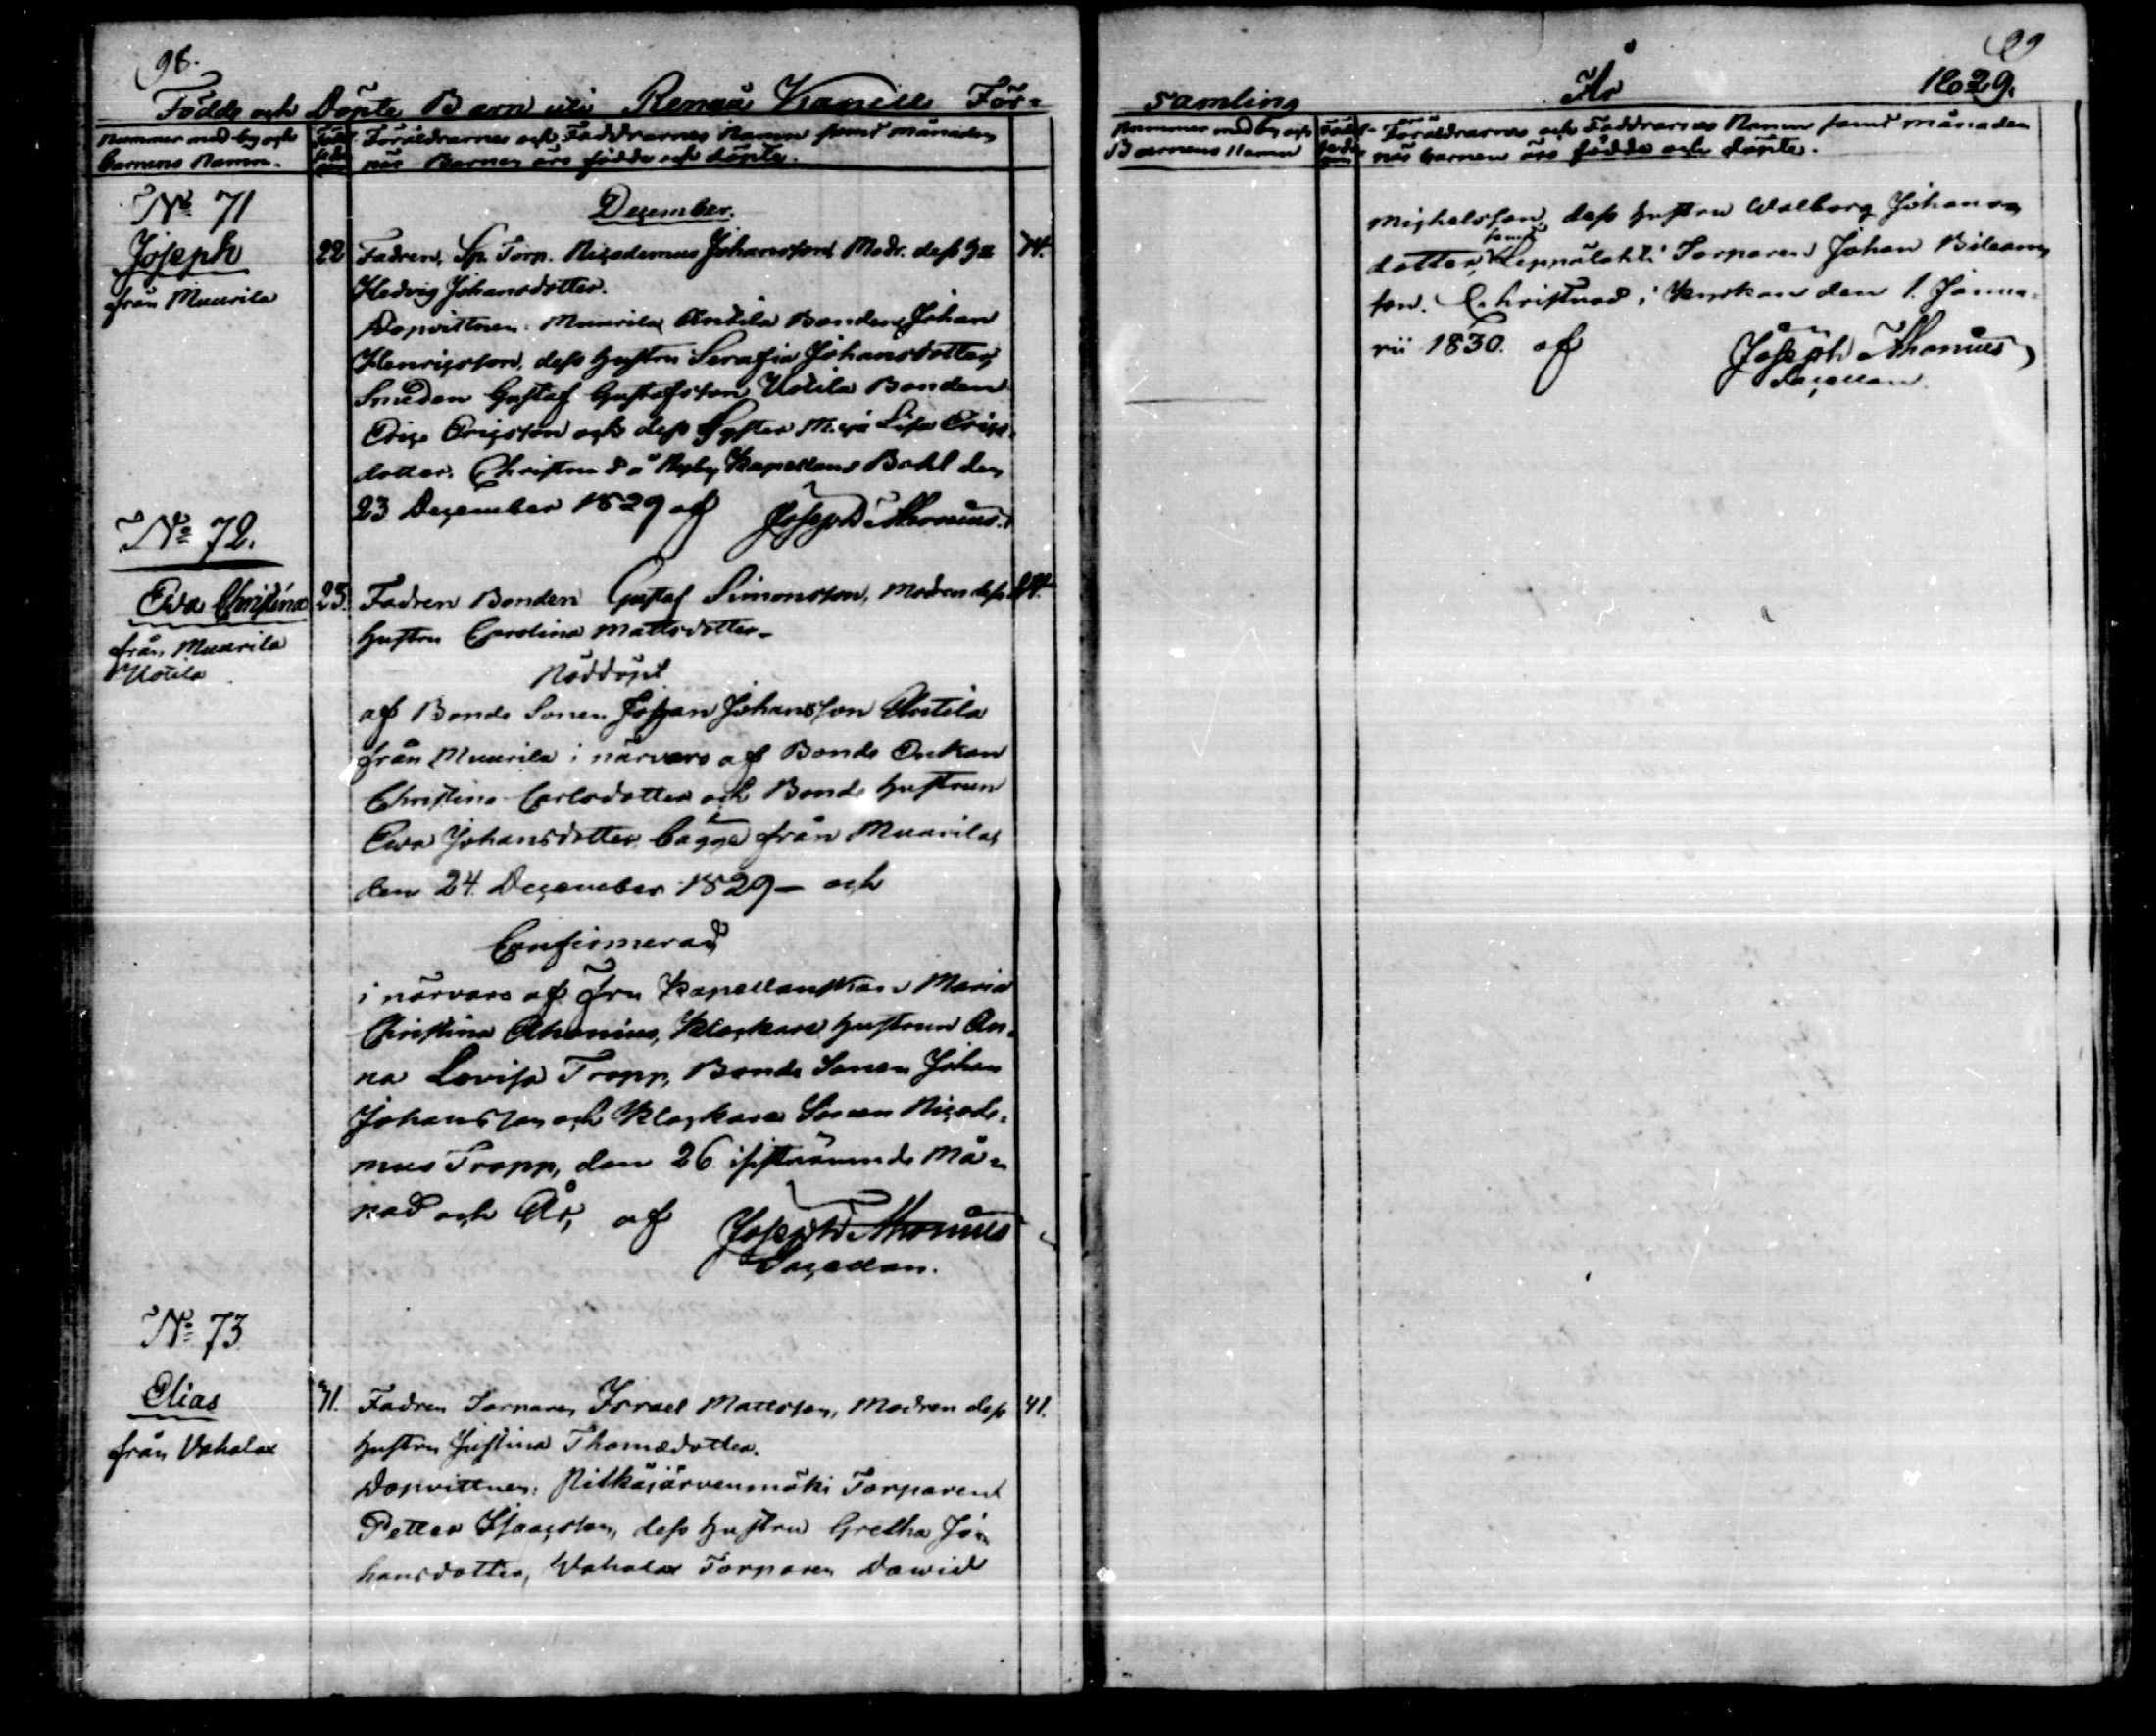 98.
Födde och Döpte Barn uti Rengå Kapell För=
Nummer med by och
barnens Namn.
Föräldrarnes och Faddrarnes Namn samt månaden
när Barnen äro födde och döpte.
N:o 71
December.
Joseph
från Muurila
22 Fadren, Sp. Torp. Nicodemus Johansson, Modr. dess hu
Hedvig Johansdotter.
Dopvittnen: Muurila Antila Bonden Johan
Henricsson, dess hustru Serafia Johansdotter,
Smeden Gustaf Gustafsson, Uotila Bonden
Eric Ericsson och dess Syster Maja Lisa Erics=
dotter. Christnad å Nyby Kapellans Bohl den
23 December 1829 af Joseph Ahonius.
N:o 72.
Ewa Christina
från Muurila
Uotila
23. Fadren Bonden Gustaf Simonsson, Modren dess
hustru Carolina Mattsdotter.
Nöddöpt
af Bonde Sonen Johan Johansson Antila
från Muurila i närvaro af Bonde Enkan
Christina Carlsdotter och Bonde hustrun
Ewa Johansdotter, bägge från Muurila,
den 24. December 1829 – och
Confirmerad
i närvaro af Fru Kapellanskan Maria
Christina Ahonius, Klockare hustrun An=
na Lovisa Tropp, Bonde Sonen Johan
Johansson och Klockare Sonen Nicode=
mus Tropp, den 26 istnämnde Må=
nad och År, af Joseph Ahonius
Sacellan.
N:o 73
Elias
från Vahalax
31. Fadren Torparen Israel Mattsson, Modren dess 41.
hustru Justina Thomædotter.
Dopvittnen: Pitkäjärvenmäki Torparen
Petter Isacsson, dess hustru Gretha Jo=
hansdotter, Wahalax Torparen Dawid
99
samling År 1829.
Nummer med by och
Barnens Namn
Föräldrarnes och Faddrarnes Namn samt månaden
när barnen äro födde och döpte.
Michelsson, dess hustru Walborg Johans
dotter, samt Leppälahti Torparen Johan Bileams
son. Christnad i Kyrkan den 1. Janua=
rii 1830. af Joseph Ahonius,
Sacellan.